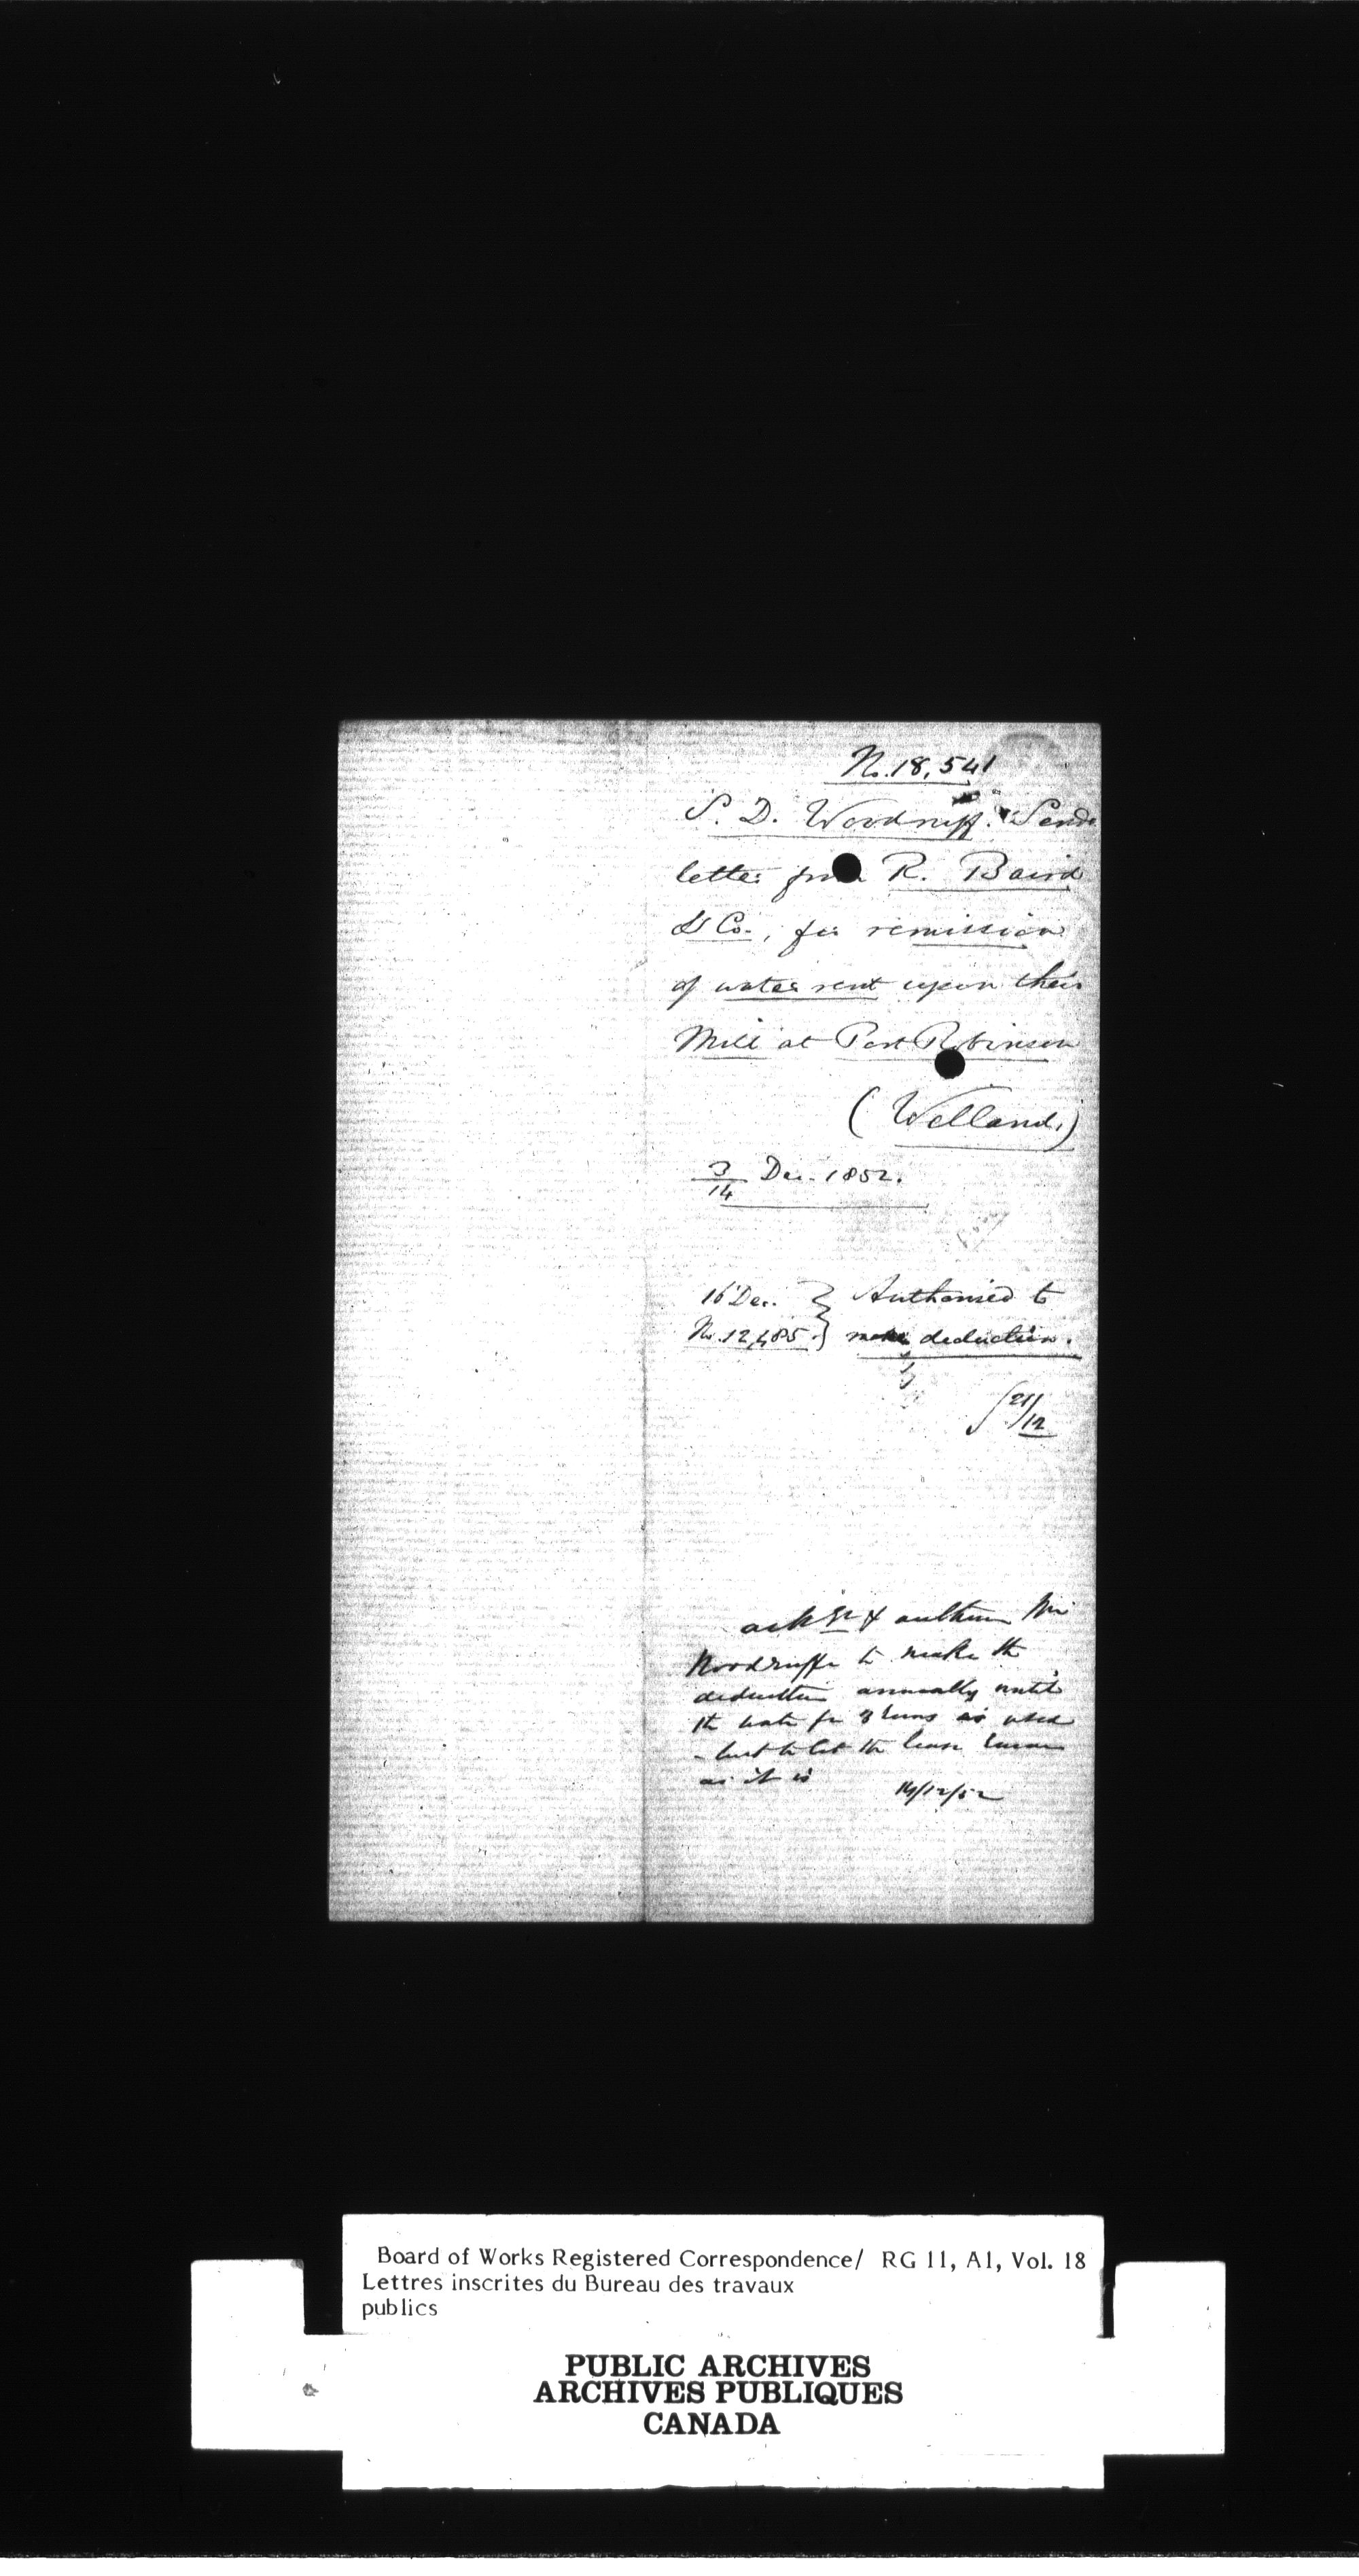 No. 18,541
S. D. Woodruff. Sends
letter from R. Baird
& Co., for remission
of water rent upon their
Mill at Port Robinson
(Welland.)
3/14 Dec. 1852.
16 Dec. } Authorised to
No. 12,485. } make deduction.
21/12
& authorise Mr
Woodruffe to make the
deduction annually until
the water for 3 is used
- but to let the lease
as it is 14/12/52
Board of Works Registered Correspondence/ RG 11, A1, Vol. 18
Lettres inscrites du Bureau des travaux
publics
PUBLIC ARCHIVES
ARCHIVES PUBLIQUES
CANADA